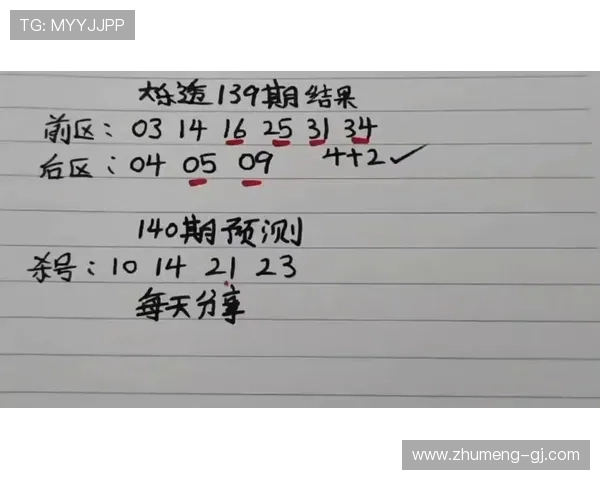 TG: MYYJJPP
大乐透139期结果
前区: 03 14 16 25 31 34
后区: 04 05 09 4+2✓
140期预测
杀号: 10 14 21 23
每天分享
www.zhumeng-gj.com